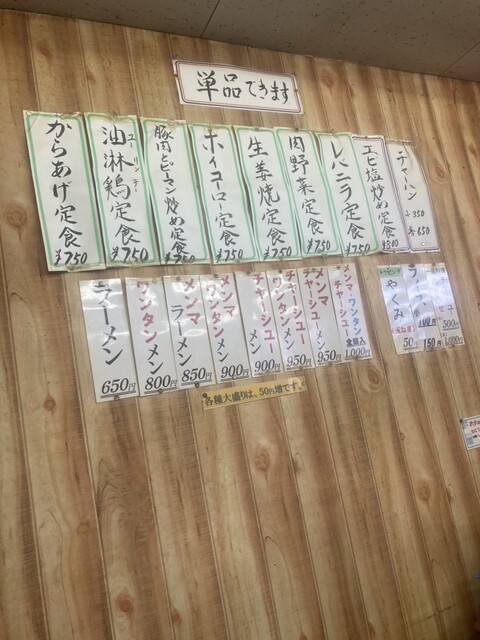 単品できます
からあげ定食
¥750
油淋鶏定食
ユーリンチー
¥750
豚肉とピーマン炒め定食
¥750
ホイコーロー定食
¥750
生姜焼定食
¥750
肉野菜定食
¥750
レバニラ定食
¥750
エビ塩炒め定食
¥800
チャーハン
小350
650
ラーメン
650円
ワンタンメン
800円
メンマラーメン
850円
メンマワンタンメン
900円
チャーシューメン
900円
チャーシューワンタンメン
950円
メンマチャーシューメン
950円
メンマ・ワンタンチャーシュー
全部入
1,000円
トッピング
やくみ
50円
100円
150円
500円
1,000円
各種大盛りは、50円増です。